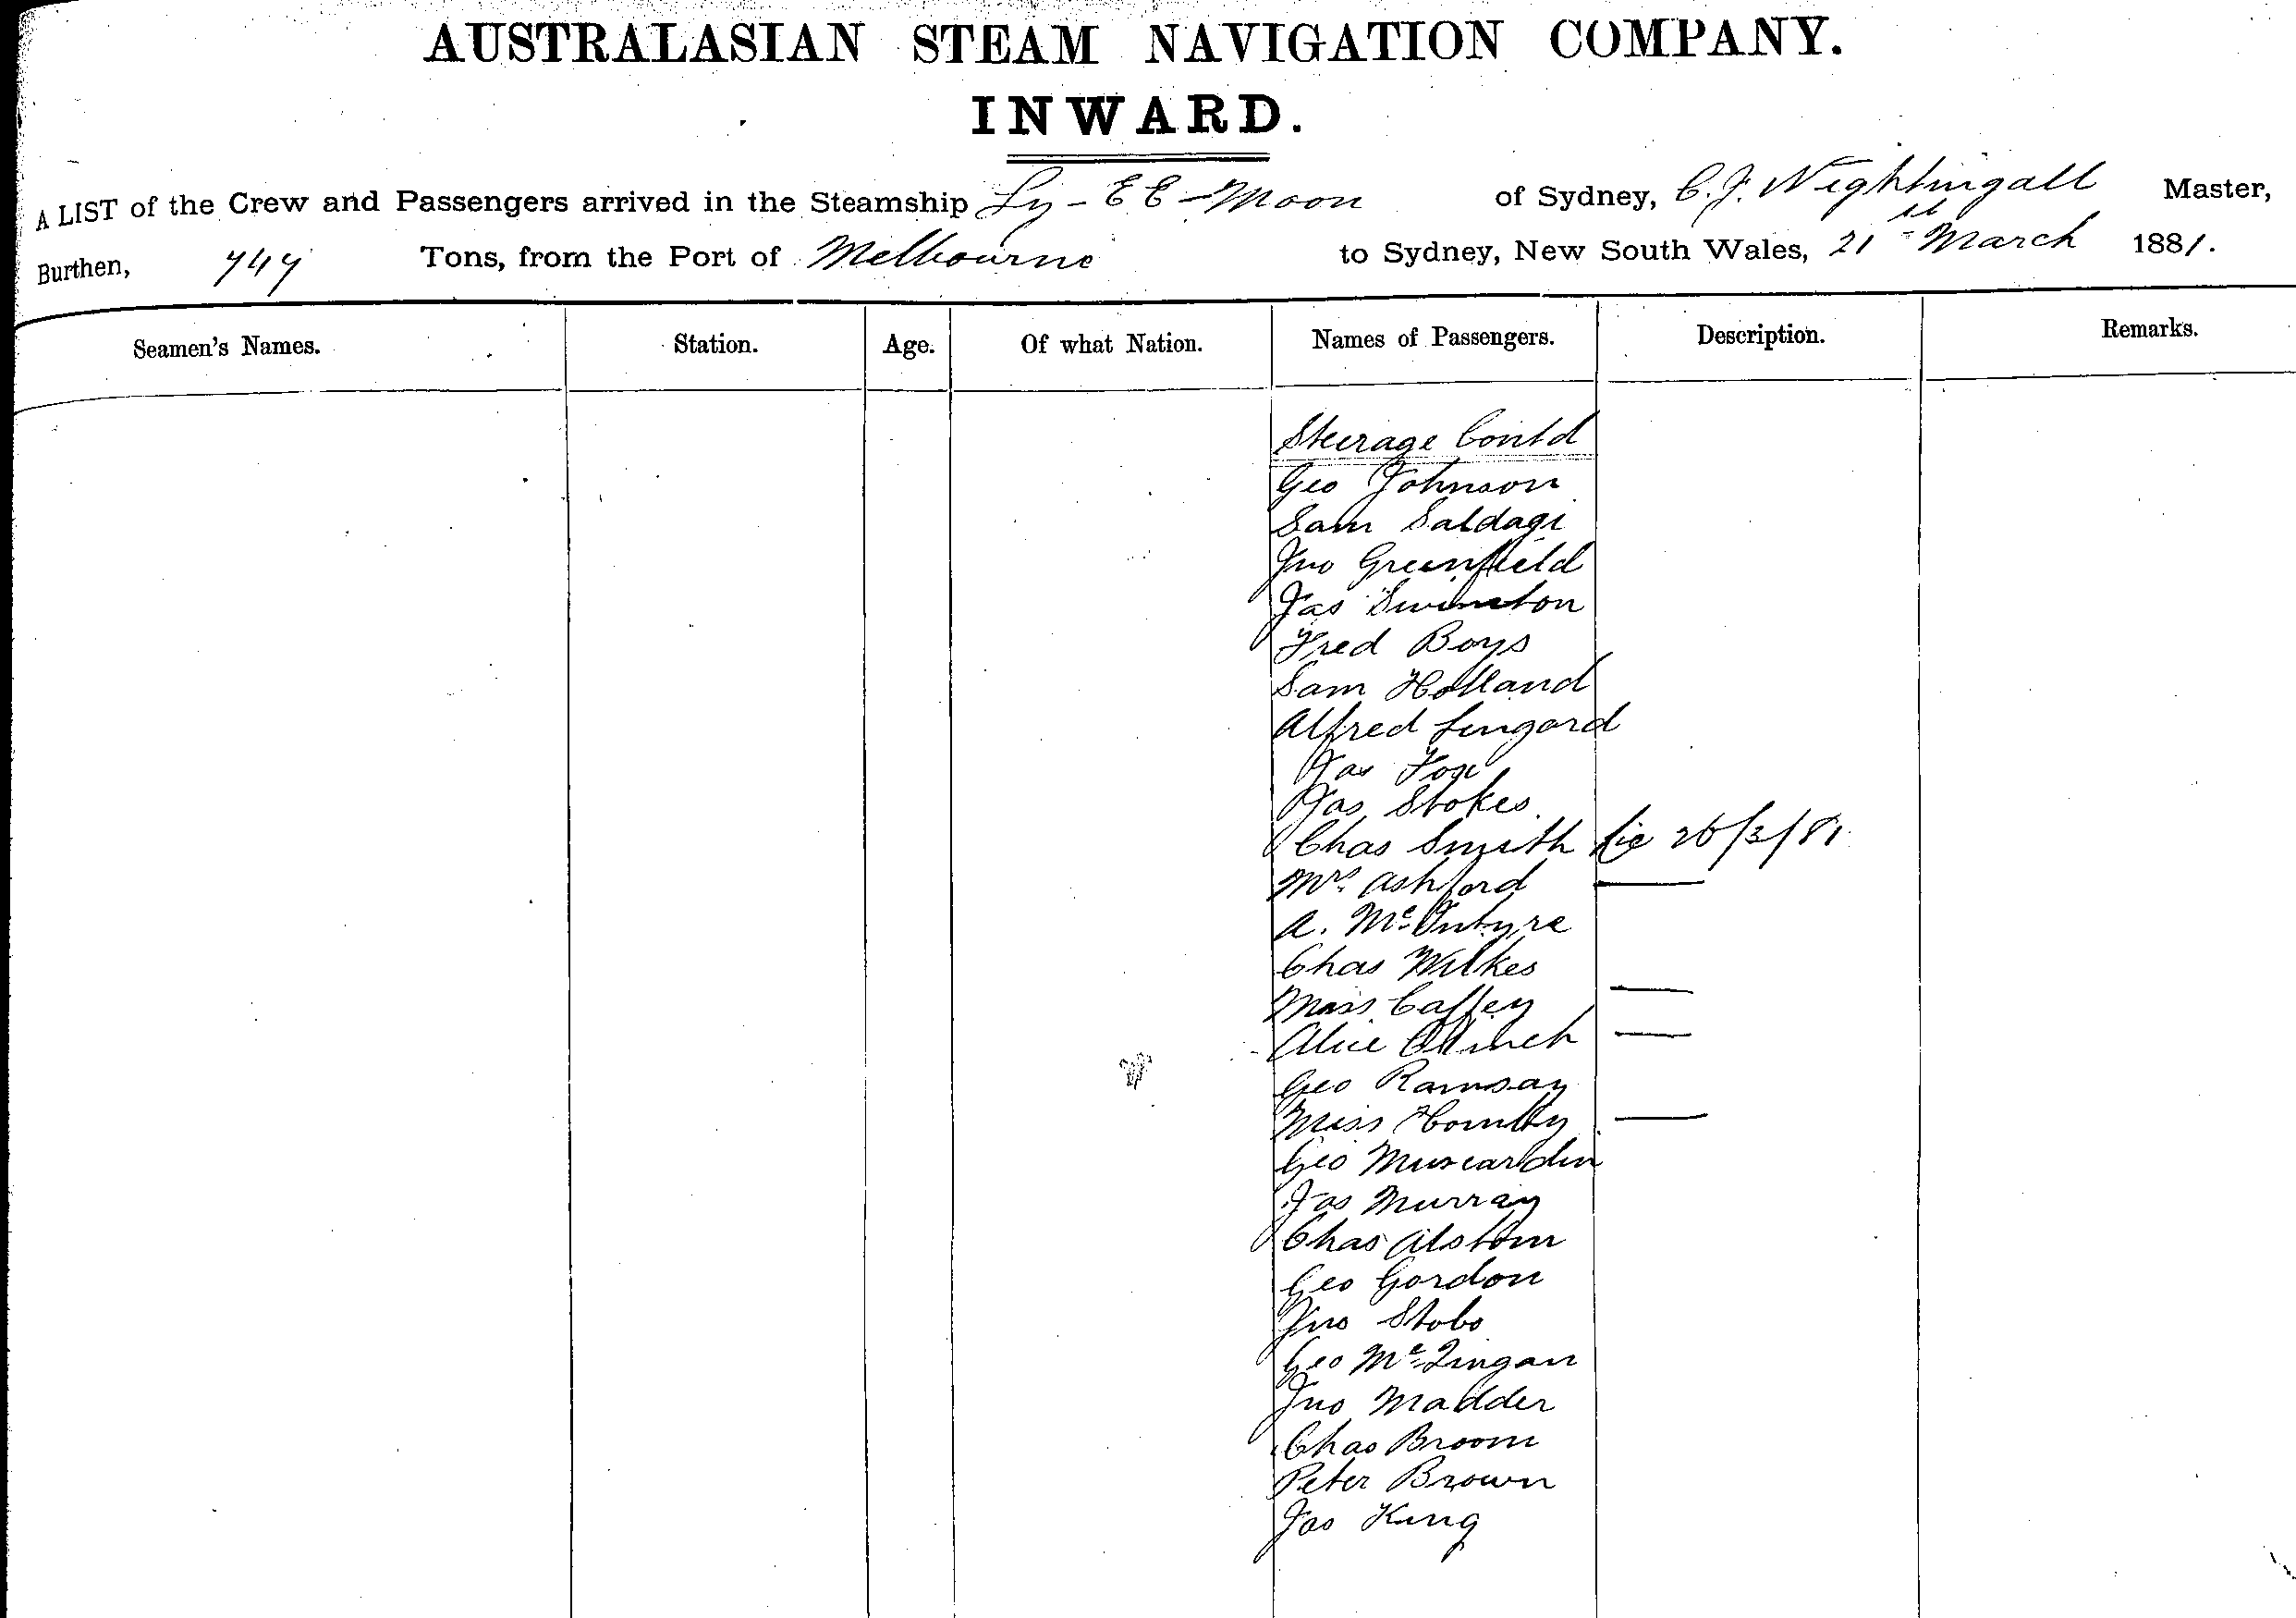 AUSTRALASIAN STEAM NAVIGATION COMPANY.
INWARD.
A LIST of the Crew and Passengers arrived in the Steamship Ly-EE-Moon of Sydney, C. J. Nightingall Master,
Burthen, 747 Tons, from the Port of Melbourne to Sydney, New South Wales, 21st March 1881.
Seamen's Names. Station. Age. Of what Nation. Names of Passengers. Description. Remarks.
Steerage Contd
Geo Johnson
Sam Saldagi
Jno Greenfield
Jas Swinston
Fred Boys
Sam Holland
Alfred Lingard
Jas Fox
Jas Stokes
Chas Smith 26/3/81
Mrs. Ashford
A. McIntyre
Chas Wilkes
Miss Caffey
Alice
Geo Ramsay
Miss
Geo
Jas Murray
Chas Alstom
Geo Gordon
Jno Stobo
Geo McLingan
Jno Madder
Chas Broom
Peter Brown
Jas King